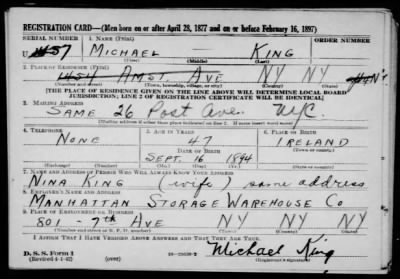 REGISTRATION CARD—(Men born on or after April 28, 1877 and on or before February 16, 1897)
SERIAL NUMBER 1. NAME (Print)
U 1457 MICHAEL KING
(First) (Middle) (Last)
2. PLACE OF RESIDENCE (Print)
1454 AMST. AVE NY NY
(Number and street) (Town, township, village, or city) (County) (State)
[THE PLACE OF RESIDENCE GIVEN ON THE LINE ABOVE WILL DETERMINE LOCAL BOARD
JURISDICTION; LINE 2 OF REGISTRATION CERTIFICATE WILL BE IDENTICAL]
3. MAILING ADDRESS
SAME 26 Post Ave. NYC
[Mailing address if other than place indicated on line 2. If same insert word same]
4. TELEPHONE 5. AGE IN YEARS 6. PLACE OF BIRTH
NONE 47 IRELAND
DATE OF BIRTH (Town or county)
SEPT. 16 1894
(Exchange) (Number) (Mo.) (Day) (Yr.) (State or country)
7. NAME AND ADDRESS OF PERSON WHO WILL ALWAYS KNOW YOUR ADDRESS
NINA KING (wife) same address
8. EMPLOYER'S NAME AND ADDRESS
MANHATTAN STORAGE WAREHOUSE CO
9. PLACE OF EMPLOYMENT OR BUSINESS
801 - 7th AVE NY NY
(Number and street or R. F. D. number) (Town) (County) (State)
I AFFIRM THAT I HAVE VERIFIED ABOVE ANSWERS AND THAT THEY ARE TRUE.
D. S. S. Form 1
(Revised 4-1-42) (over) Michael King
(Registrant's signature)